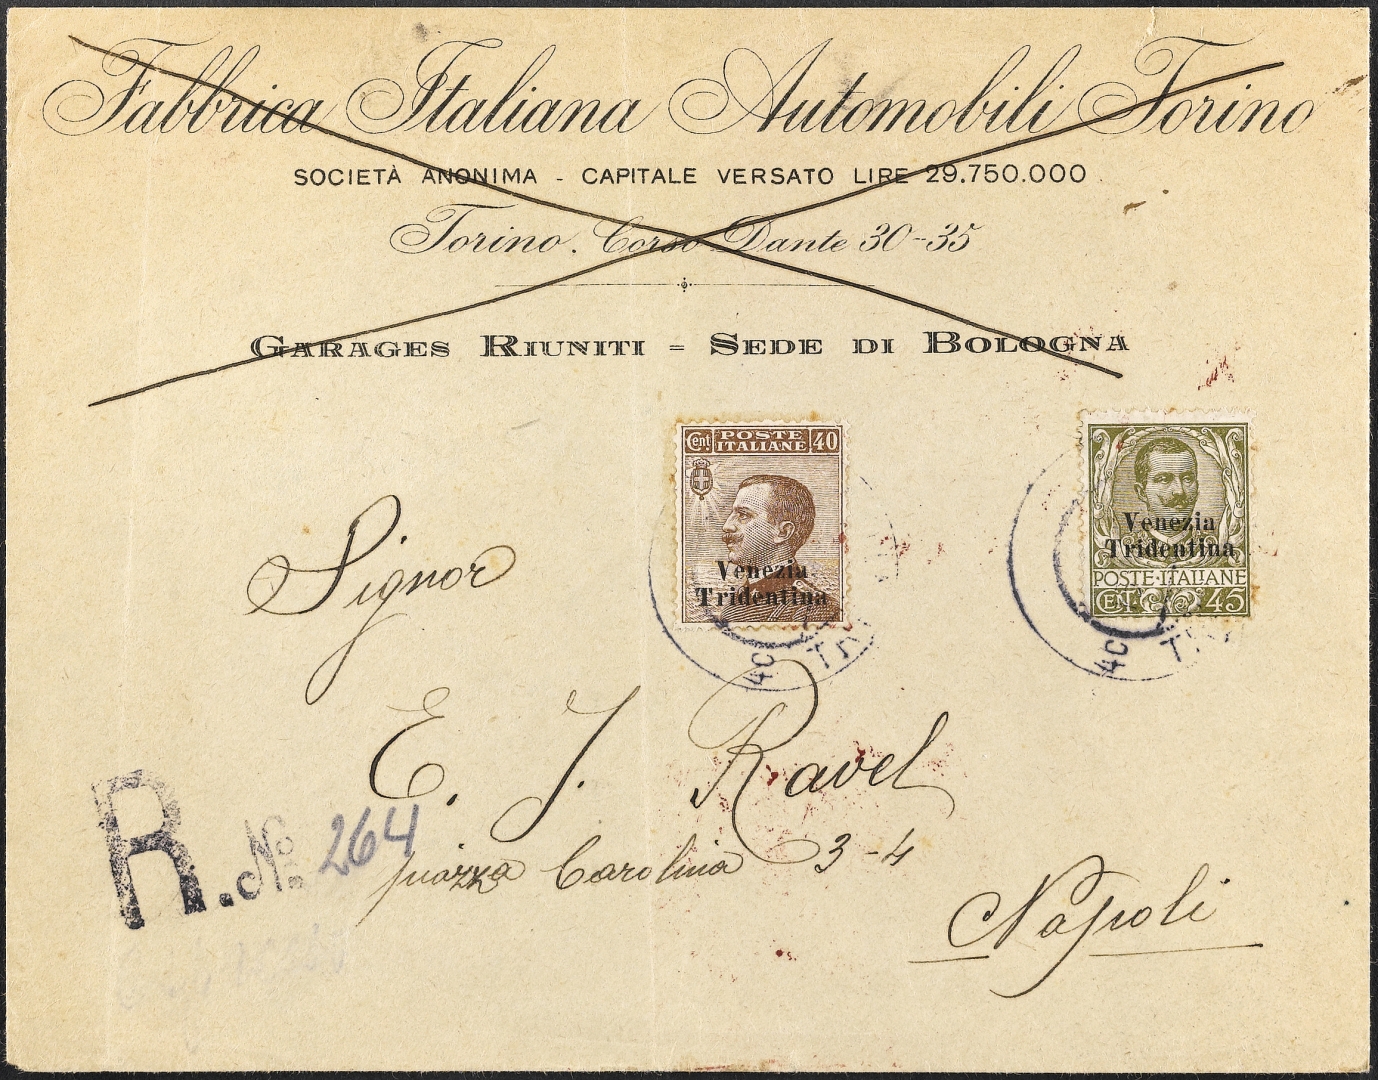 Fabbrica Italiana Automobili Torino
SOCIETÀ ANONIMA - CAPITALE VERSATO LIRE 29.750.000
Torino. Corso Dante 30-35
GARAGES RIUNITI = SEDE DI BOLOGNA
Cent. POSTE ITALIANE 40
Venezia
Tridentina
Venezia
Tridentina
POSTE·ITALIANE
CENT. 45
Signor
E. J. Ravel
piazza Carolina 3-4
Napoli
R. No. 264